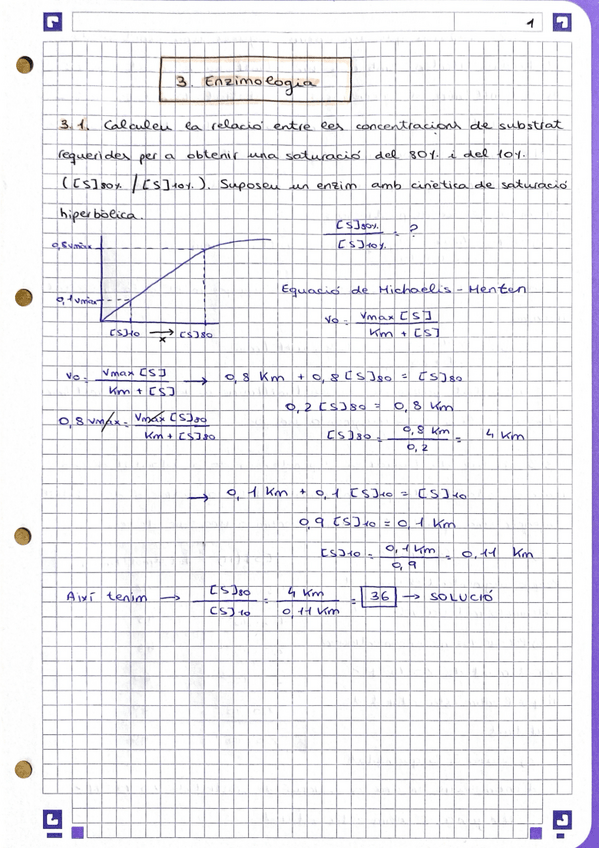 1
3. Enzimologia
3.1. Calculeu la relació entre les concentracions de substrat
requerides per a obtenir una saturació del 80% i del 10%.
([S]80% / [S]10%). Suposeu un enzim amb cinètica de saturació
hiperbòlica.
[S]80% / [S]10% = ?
0,8 vmàx
0,1 vmàx
[S]10 → [S]80
x
Equació de Michaelis-Menten
vo = vmax [S] / Km + [S]
vo = vmax [S] / Km + [S] → 0,8 Km + 0,8 [S]80 = [S]80
0,2 [S]80 = 0,8 Km
0,8 vmax = vmax [S]80 / Km + [S]80
[S]80 = 0,8 Km / 0,2 = 4 Km
→ 0,1 Km + 0,1 [S]10 = [S]10
0,9 [S]10 = 0,1 Km
[S]10 = 0,1 Km / 0,9 = 0,11 Km
Així tenim → [S]80 / [S]10 = 4 Km / 0,11 Km = 36 → SOLUCIÓ